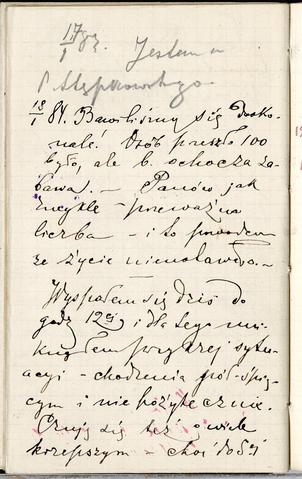 17/I 83. Jestem u
P. Stępkowskiego.
18/I 84. Bawiliśmy się dosko-
nale! Osób przeszło 100
było, ale b. ochocza za-
bawa. — Panów jak
zwykle — przeważna
liczba — i to powodem
że życie
Wyspałem się dziś do
godz 12ej i dla tego
uniknąłem przykrej sytu-
acyi — chodzenia pół-śpią-
cym i nie pożytecznie.
Czuję się też o wiele
krzepszym — choć dość